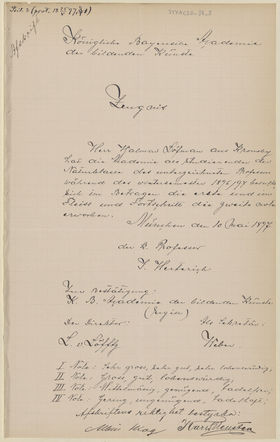 Afskrift
Königliche Bayerische Akademie
der bildenden Künste
Zeugnis
Herr Hjalmar Löfman aus Kronoby
hat die Akademie als Studierender der
Naturklasse des unterzeichneten Professors
während des Wintersemester 1896/97 besucht
sich im Betragen die erste und im
Fleiss und Fortschritt die zweite Note
erworben.
München den 10 Mai 1897
der K. Professor
J. Herterich
Zur Bestätigung:
K. B. Akademie der bildenden Künste
(Sigill)
Der Direktor: Als Sekretär:
L. v. Löfftz
I Note: Sehr gross, sehr gut, sehr lobenswürdig,
II. Note: Gross, gut, lobenswürdig,
III. Note: Mittelmässig, genügend, tadelfrei,
IV Note: Gering, ungenügend, tadelhaft.
Afskriftens riktighet bestyrka: